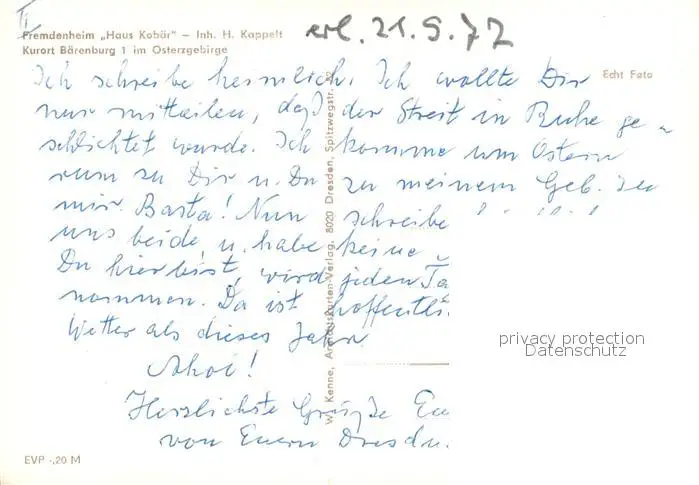 Fremdenheim „Haus Kobär" – Inh. H. Kappelt
Kurort Bärenburg 1 im Osterzgebirge
erl. 21.5.72
Echt Foto
Ich schreibe heimlich. Ich wollte Dir
nur mitteilen, daß der Streit in Ruhe ge-
schlichtet wurde. Ich komme um Ostern
rum zu Dir u. Du zu meinem Geb. zu
mir. Basta! Nun schreibe
uns beide u. habe keine
Du hier bist, wird jeden
nommen. Da ist hoffentli
Wetter als dieses Jahr
Ahoi!
Herzlichste Grüße
von Euern
W. Kenne, Ansichtskarten-Verlag, 8020 Dresden, Spitzwegstr.
privacy protection
Datenschutz
EVP -,20 M